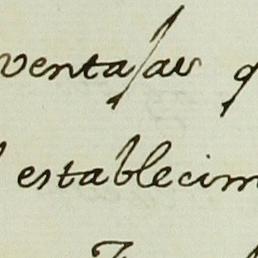 ventajas q
establecim